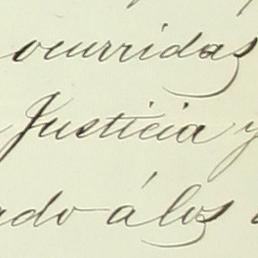 ocurridas
Justicia y
ado á los